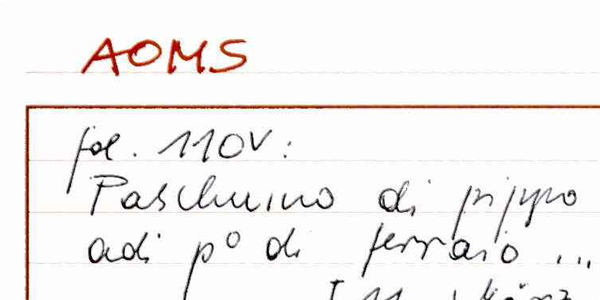 AOMS
fol. 110V:
Paschuino di pippo
adi pº di ferraio ...